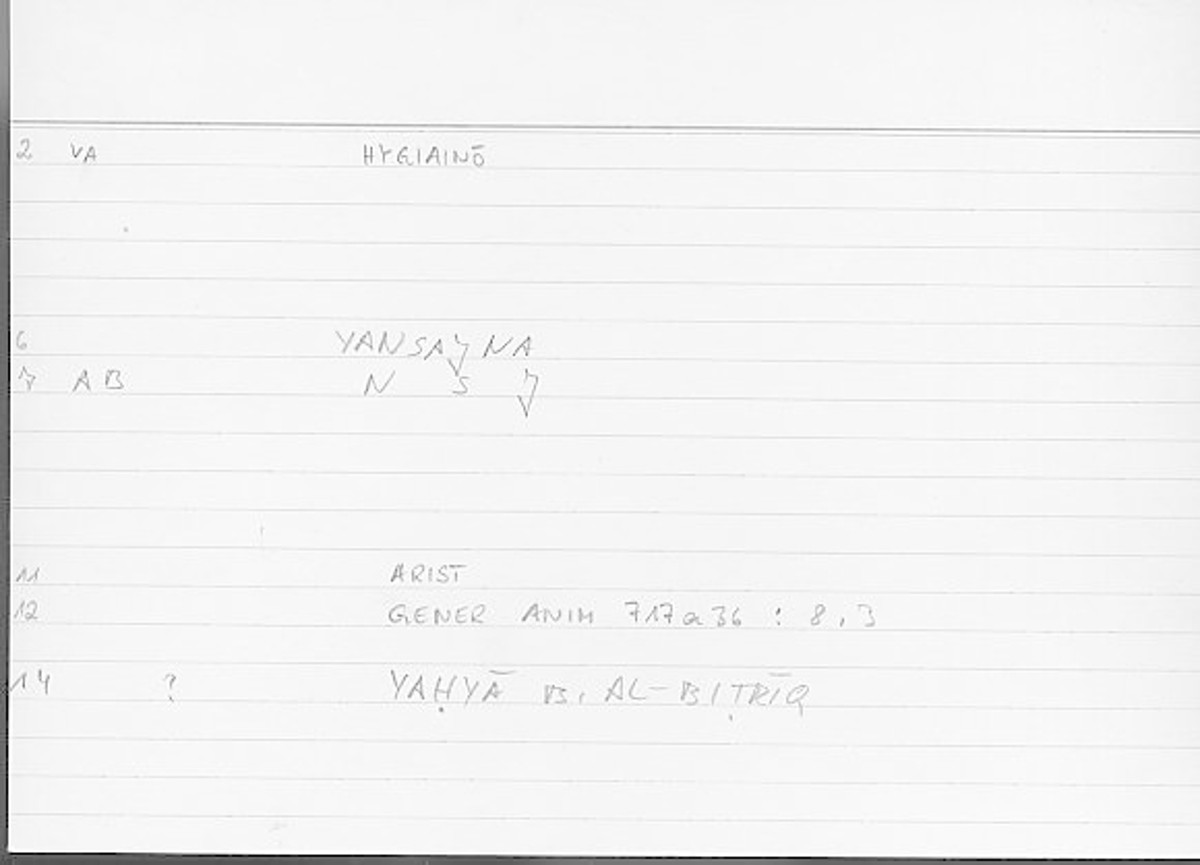 2 VA HYGIAINŌ
6
7 AB N S
11 ARIST
12 GENER ANIM 717a36 : 8,3
14 ? YAḤYĀ B. AL-BIṬRĪQ